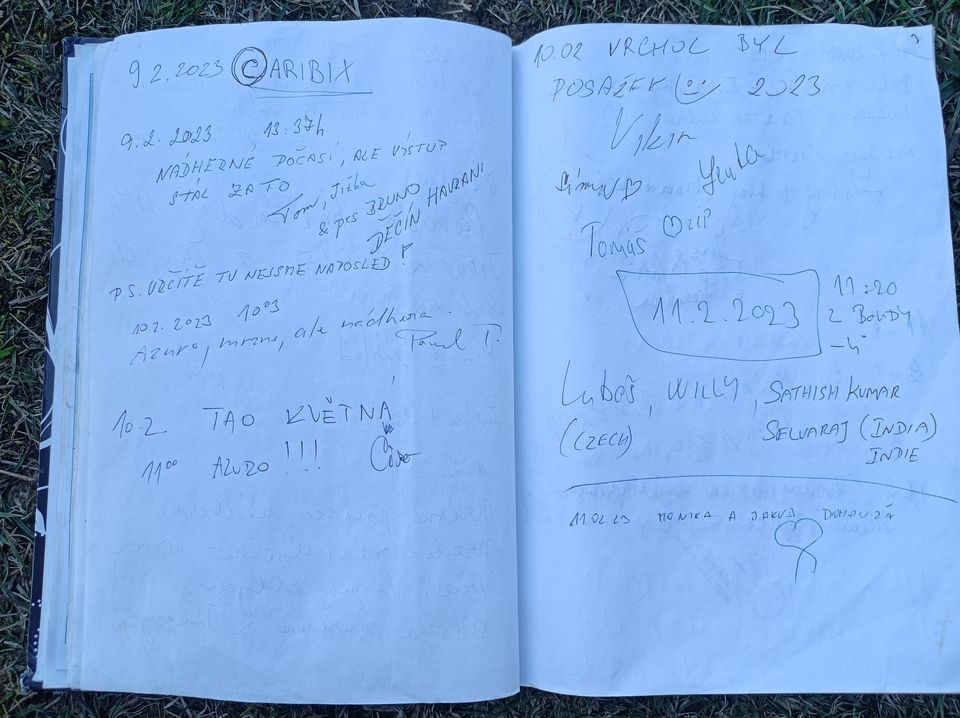 9.2.2023 ©ARIBIX
9.2.2023 13:37h
NÁDHERNÉ POČASÍ, ALE VÝSTUP
STAL ZA TO
Tom, Jitka
& pes BRUNO
DĚČÍN HAVRANI
P.S. URČITĚ TU NEJSME NAPOSLED!
10.2.2023 10⁰³
Azuro, mrzne, ale nádhera.
Pavel T.
10.2 TAO KVĚTNA
11⁰⁰ AZURO !!!
10.02 VRCHOL BYL
POSAŽEN 2023
Viktor
Tomáš
11.2.2023
11:20
2 BOUDY
-4°
Luboš, WILLY, SATHISH KUMAR
(CZECH) SELVARAJ (INDIA)
INDIE
11.02.23 MONIKA A JAKUB